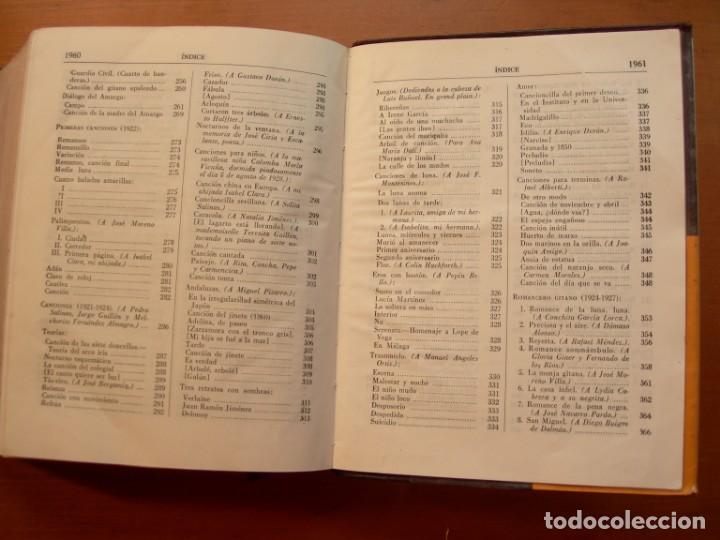 1960
ÍNDICE
Guardia Civil. (Cuarto de banderas.) 256
Canción del gitano apaleado 260
Diálogo del Amargo:
Campo 261
Canción de la madre del Amargo 269
PRIMERAS CANCIONES (1922):
Remansos 273
Remansillo 273
Variación 274
Remanso, canción final 274
Media luna
Cuatro baladas amarillas:
I 275
II
III
IV 277
Palimpsestos. (A José Moreno Villa.):
I. Ciudad 278
II. Corredor 279
III. Primera página. (A Isabel Clara, mi ahijada.)
Adán
Claro de reloj
Cautiva
Canción
CANCIONES (1921-1924). (A Pedro Salinas, Jorge Guillén y Melchorito Fernández Almagro.)
Teorías:
Canción de las siete doncellas.—Teoría del arco iris
Nocturno esquemático
La canción del colegial
[El canto quiere ser luz]
Tiovivo. (A José Bergamín.)
Balanza
Canción con movimiento 292
Refrán 292
Friso. (A Gustavo Durán.)
Cazador
Fábula
[Agosto]
Arlequín
Cortaron tres árboles. (A Ernesto Halffter.)
Nocturnos de la ventana. (A la memoria de José Ciria y Escalante, poeta.)
Canciones para niños. (A la maravillosa niña Colomba Morla Vicuña, dormida piadosamente el día 8 de agosto de 1928.)
Canción china en Europa. (A mi ahijada Isabel Clara.)
Cancioncilla sevillana. (A Solita Salinas.)
Caracola. (A Natalia Jiménez.) 301
[El lagarto está llorando]. (A mademoiselle Teresita Guillén, tocando un piano de siete notas.)
Canción cantada
Paisaje. (A Rita, Concha, Pepe y Carmencica.)
Canción tonta
Andaluzas. (A Miguel Pizarro.)
En la irregularidad simétrica del Japón
Canción del jinete (1860)
Adelina, de paseo
[Zarzamora con el tronco gris]
[Mi hija se fué a la mar]
Tarde
Canción de jinete
La verdad
[Arbolé, arbolé]
[Galán]
Tres retratos con sombras:
Verlaine 311
Juan Ramón Jiménez 312
Debussy 313
ÍNDICE
1961
Juegos. (Dedicados a la cabeza de Luis Buñuel. En grand plain.):
Ribereñas 315
A Irene García 316
Al oído de una muchacha
[Las gentes iban]
Canción del mariquita
Árbol de canción. (Para Ana María Dalí.)
[Naranja y limón]
La calle de los mudos
Canciones de luna. (A José F. Montesinos.)
La luna asoma 321
Dos lunas de tarde:
1. (A Laurita, amiga de mi hermana.)
2. (A Isabelita, mi hermana.)
Lunes, miércoles y viernes
Murió al amanecer
Primer aniversario
Segundo aniversario
Flor. (A Colin Hackforth.)
Eros con bastón. (A Pepín Bello.):
Susto en el comedor
Lucía Martínez
La soltera en misa
Interior
Nu
Serenata.—Homenaje a Lope de Vega
En Málaga
Trasmundo. (A Manuel Ángeles Ortiz.)
Escena 330
Malestar y noche 331
El niño mudo
El niño loco
Desposorio
Despedida
Suicidio 334
Amor:
Cancioncilla del primer deseo 336
En el Instituto y en la Universidad
Madrigalillo
Eco
Idilio. (A Enrique Durán.)
[Narciso]
Granada y 1850
Preludio
[Preludio]
Soneto
Canciones para terminar. (A Rafael Alberti.)
De otro modo 342
Canción de noviembre y abril 343
[Agua, ¿dónde vas?] 344
El espejo engañoso
Canción inútil
Huerto de marzo
Dos marinos en la orilla. (A Joaquín Amigo.)
Ansia de estatua
Canción del naranjo seco. (A Carmen Morales)
Canción del día que se va 348
ROMANCERO GITANO (1924-1927):
1. Romance de la luna, luna. (A Conchita García Lorca.) 353
2. Preciosa y el aire. (A Dámaso Alonso.)
3. Reyerta. (A Rafael Méndez.)
4. Romance sonámbulo. (A Gloria Giner y Fernando de los Ríos.)
5. La monja gitana. (A José Moreno Villa.)
6. La casa infiel. (A Lydia Cabrera y a su negrita.)
7. Romance de la pena negra. (A José Navarro Pardo.) 364
8. San Miguel. (A Diego Buigas de Dalmáu.) 366
todocoleccion